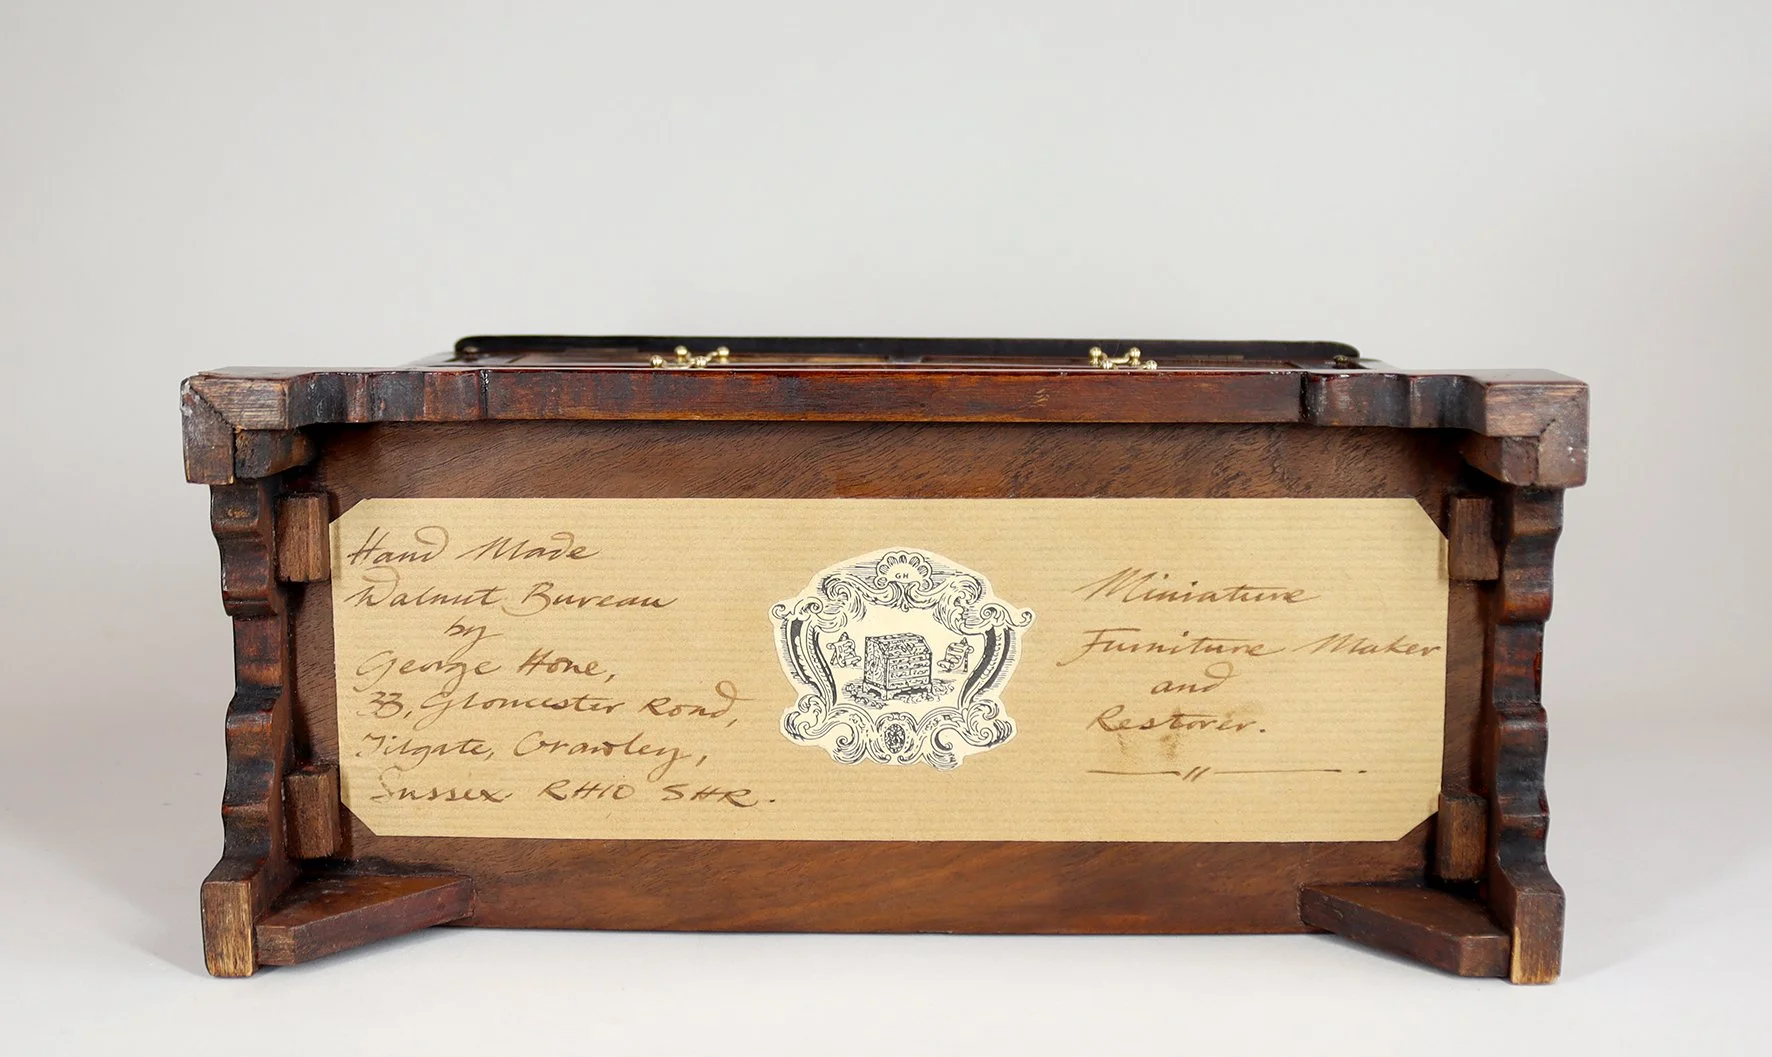 Hand Made
Walnut Bureau
by
George Hone,
33, Gloucester Road,
Tilgate, Crawley,
Sussex RH10 5HR.
GH
Miniature
Furniture Maker
and
Restorer.